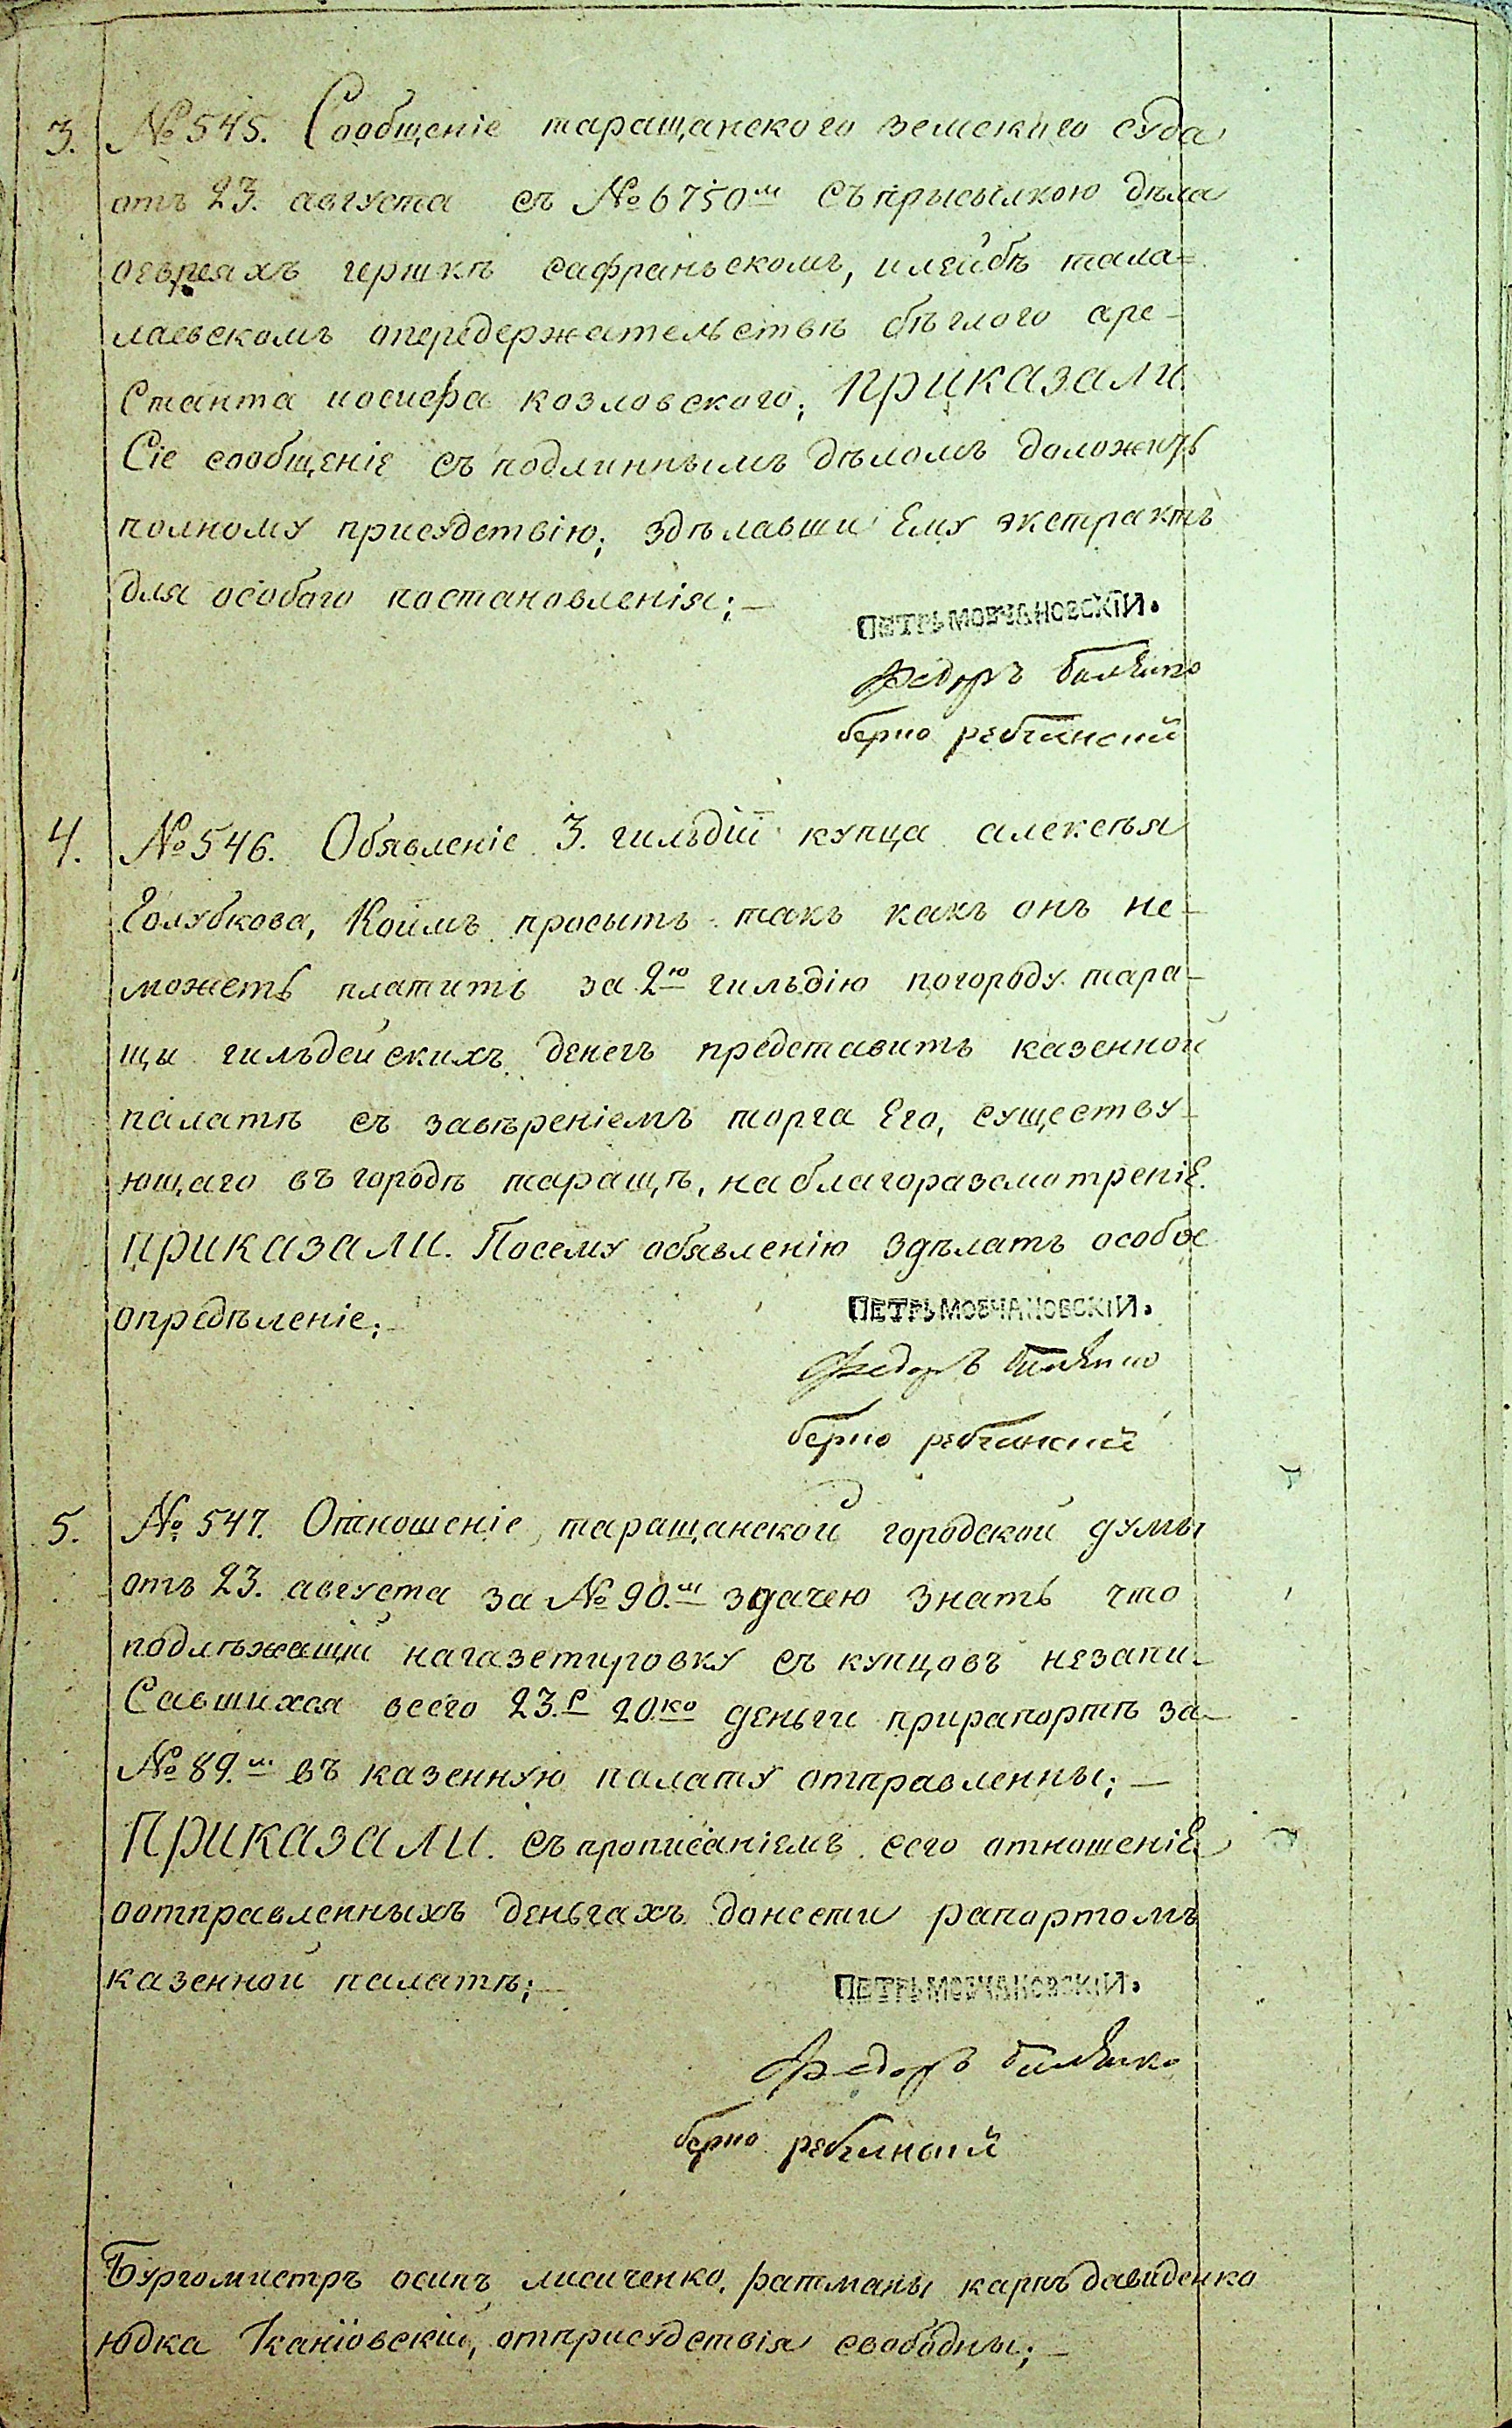 3. № 545. Сообщеніе таращанского земского суда
отъ 23. августа съ № 6750м съ присылкою дѣла
оевреяхъ гершкѣ сафраньскомъ, илейбѣ тала=
лаевскомъ опередержательствѣ бѣглого аре-
Станта иосифа козловского; приказали
Сіе сообщеніе съ подлиннымъ дѣломъ доложить
полному присудствію; здѣлавши Ему экстрактъ
для особого постановленія; —
ПЕТРЬ МОВЧАНОВСКІЙ.
Федоръ
берко
4. № 546. Обявленіе 3. гильдіи купца алексѣя
Голубкова, Коимъ просытъ такъ какъ онъ не-
можетъ платить за 2ю гильдію погороду тара-
щи гильдейскихъ денегъ представить казенной
палатѣ съ завѣреніемъ торга Его, существу-
ющаго въ городѣ таращѣ, на благоразсмотреніЕ.
приказали. Посему обявленію здѣлать особое
опредѣленіе; -
ПЕТРЬ МОВЧАНОВСКІЙ.
Федоръ
берко
5. № 547. Отношеніе таращанской городской думы
отъ 23. августа за № 90.м здачею знать что
подлѣжащіи нагазетировку съ купцовъ незапи-
Савшихся всего 23.р 20.ко деньги прирапортѣ за
№ 89.м въ казенную палату отправленны; —
Приказали. съ прописаніемъ сего отношеніЕ
оотправленныхъ деньгахъ донести рапортомъ
казенной палатѣ; —
ПЕТРЬ МОВЧАНОВСКІЙ.
Федоръ
берко
Бургомистръ осипъ лисиченко, ратманы карпъ давиденко
юдка Каніовскій, отприсудствія свободны; —